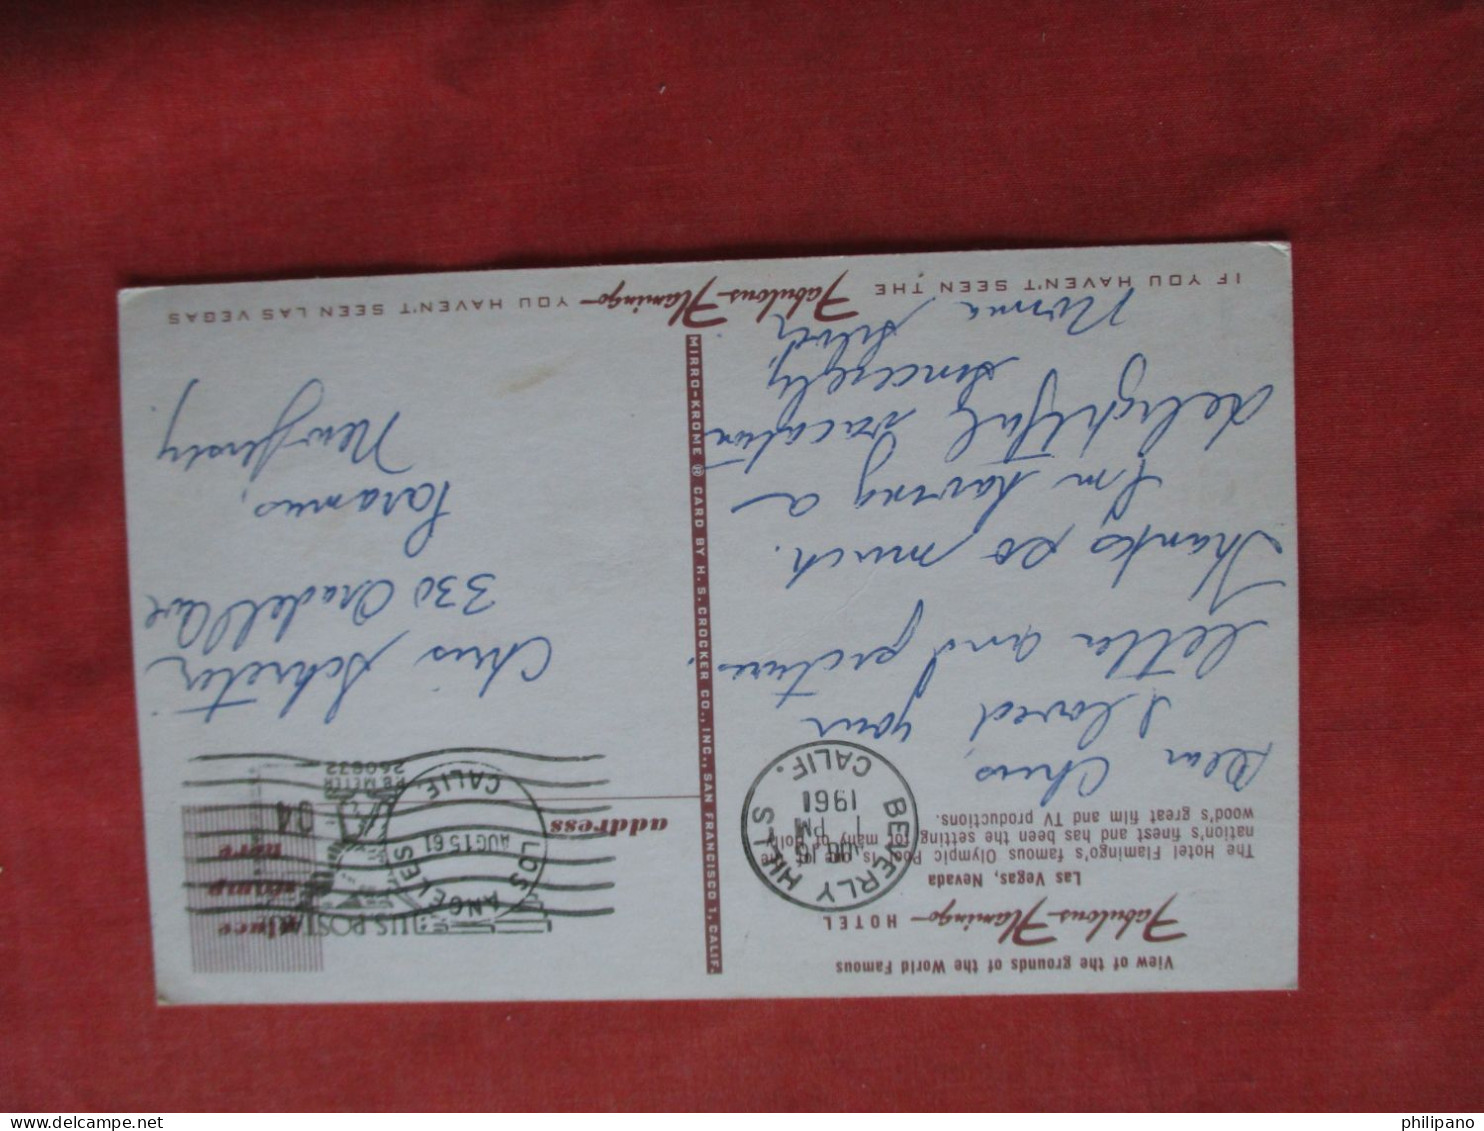 View of the grounds of the World Famous
Fabulous Flamingo HOTEL
Las Vegas, Nevada
The Hotel Flamingo's famous Olympic Pool is one of the
nation's finest and has been the setting for many of Holly-
wood's great film and TV productions.
BEVERLY HILLS
CALIF.
PM
1961
Dear Chris,
I loved your
letter and picture.
Thanks so much.
I'm having a
delightful vacation
Sincerely,
Norma
IF YOU HAVEN'T SEEN THE Fabulous Flamingo YOU HAVEN'T SEEN LAS VEGAS
MIRRO-KROME ® CARD BY H. S. CROCKER CO., INC., SAN FRANCISCO 1, CALIF.
place
stamp
here
U.S. POSTAGE
04
P.B. METER
260832
LOS ANGELES
CALIF.
AUG 15 61
address
Chris Schreter
330 Oradell Ave
Paramus,
New Jersey
philipano.com
philipano